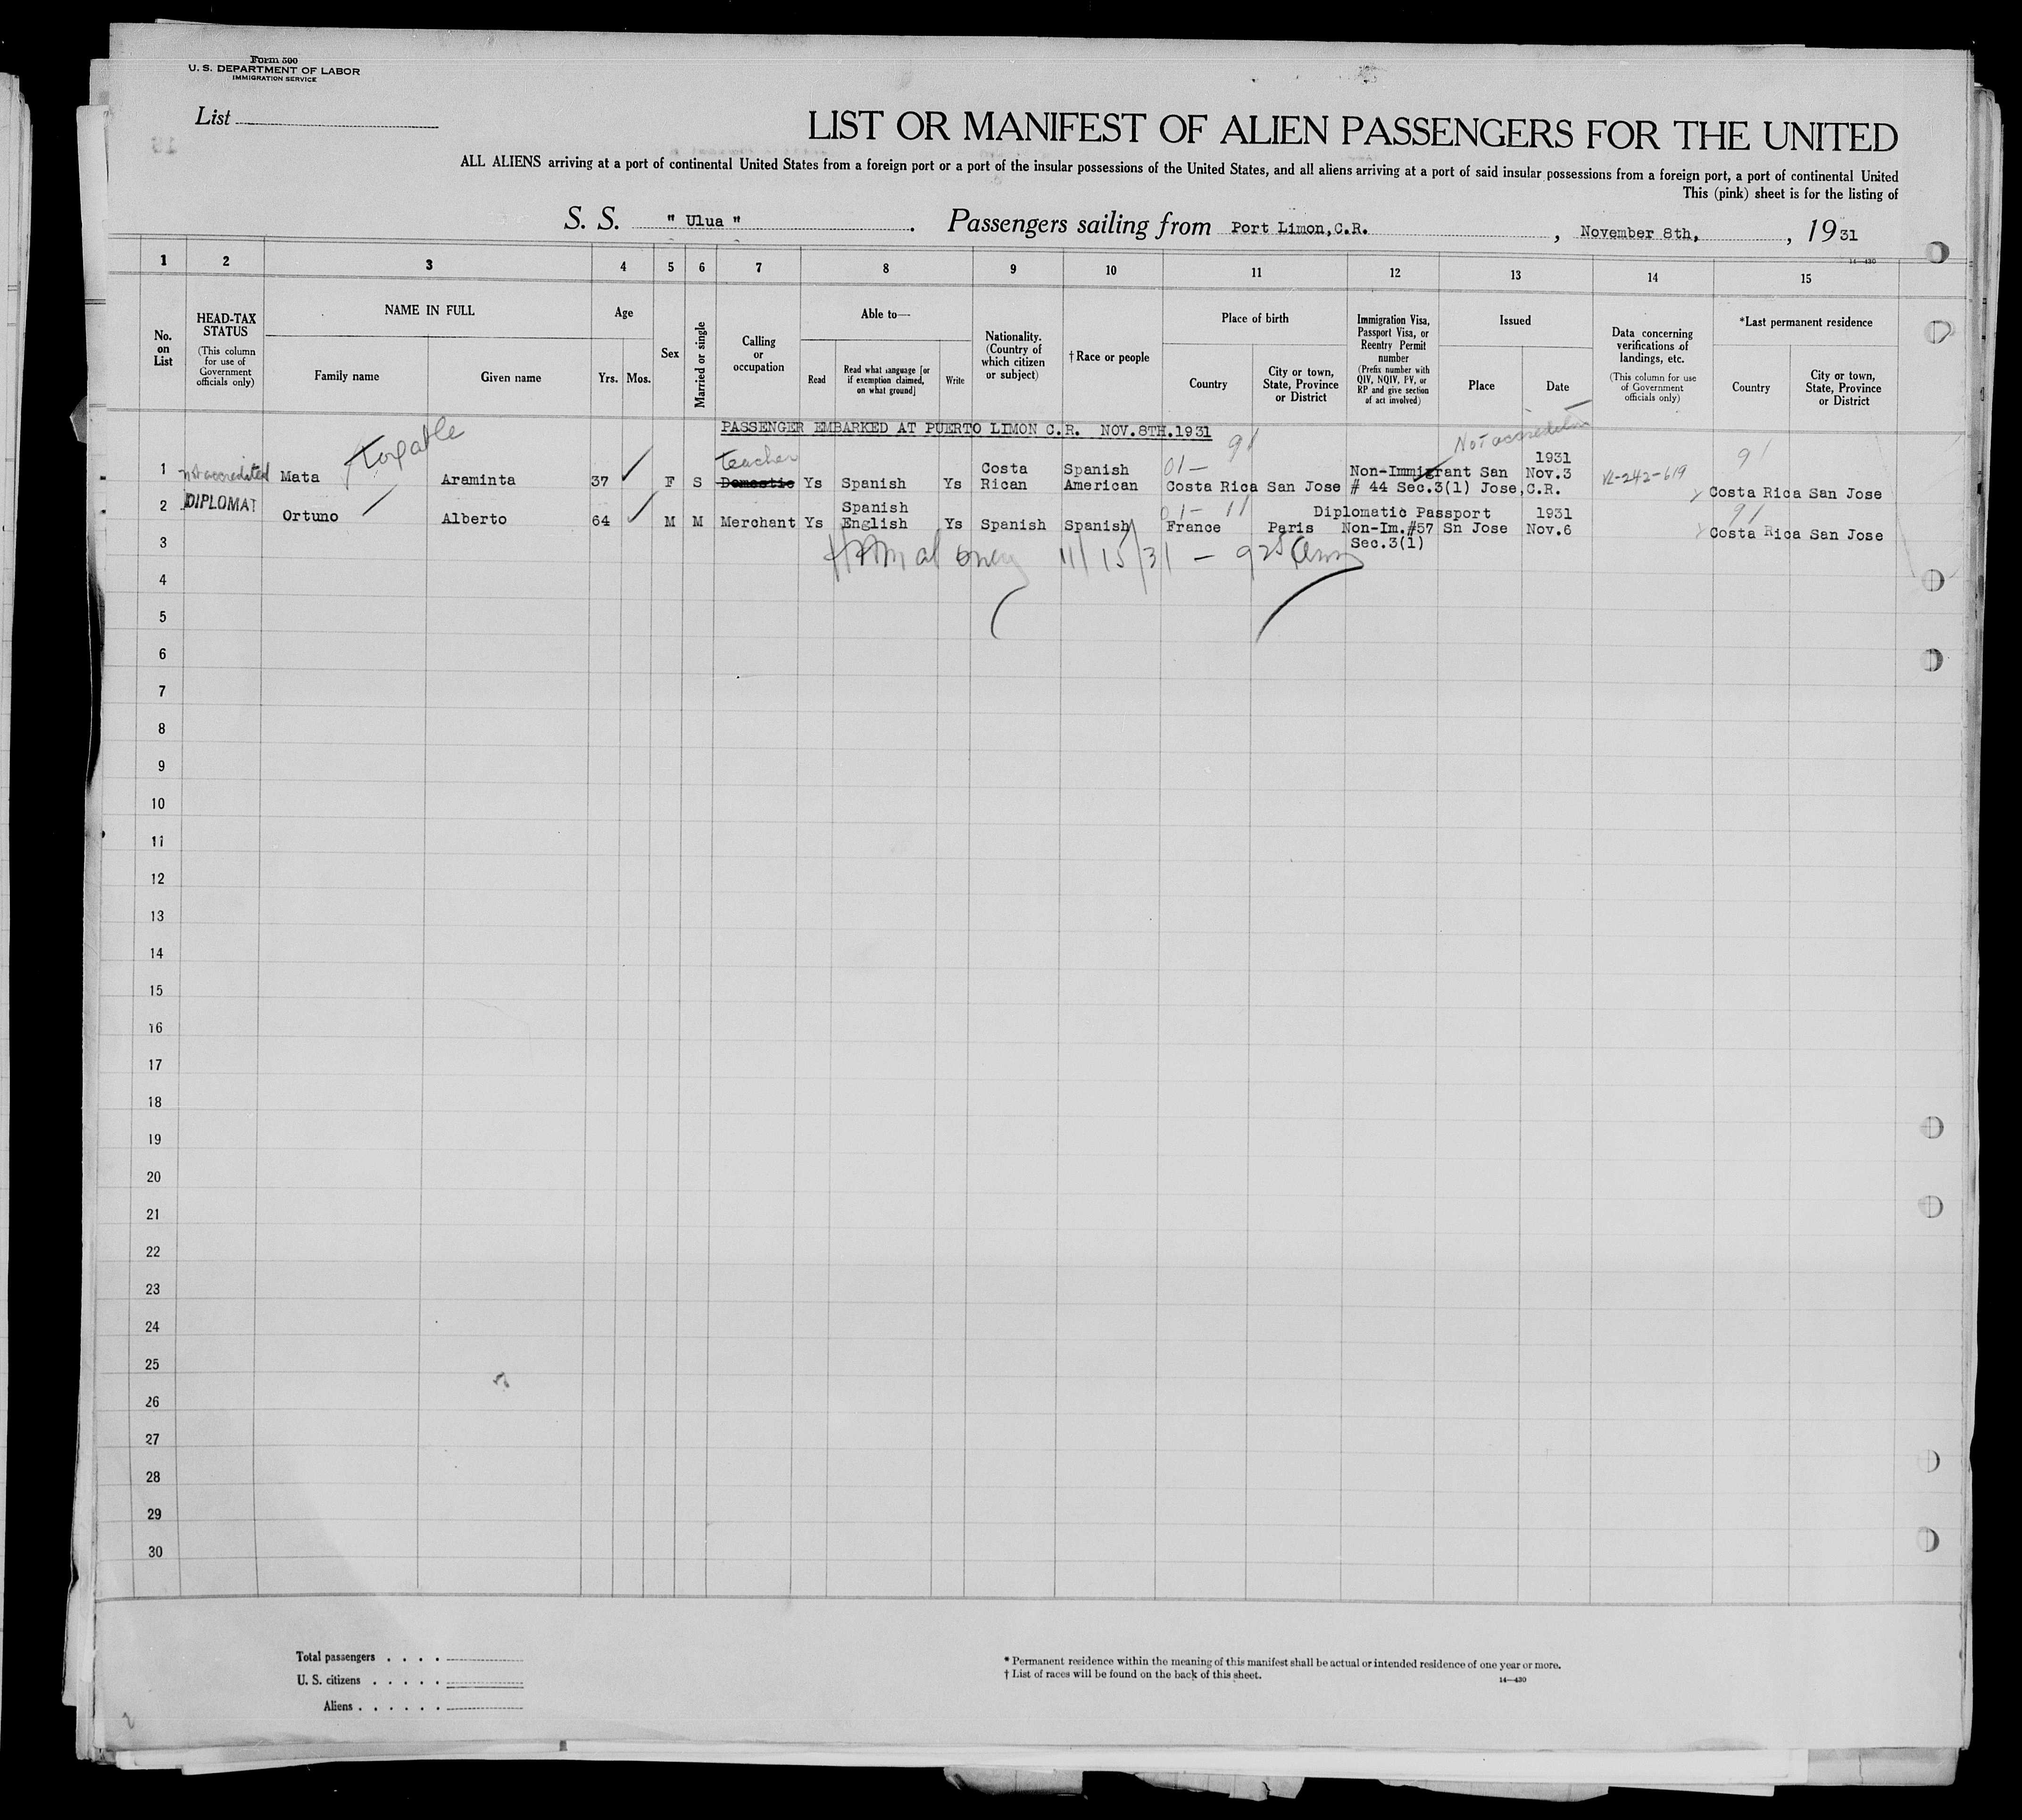 Form 500
U. S. DEPARTMENT OF LABOR
IMMIGRATION SERVICE
List
LIST OR MANIFEST OF ALIEN PASSENGERS FOR THE UNITED
ALL ALIENS arriving at a port of continental United States from a foreign port or a port of the insular possessions of the United States, and all aliens arriving at a port of said insular possessions from a foreign port, a port of continental United
This (pink) sheet is for the listing of
S. S. " Ulua " . Passengers sailing from Port Limon,C.R. , November 8th, , 1931
14—430
1 2 3 4 5 6 7 8 9 10 11 12 13 14 15
No. on List
HEAD-TAX STATUS
(This column for use of Government officials only)
NAME IN FULL
Family name
Given name
Age
Yrs. Mos.
Sex
Married or single
Calling or occupation
Able to—
Read
Read what language [or if exemption claimed, on what ground]
Write
Nationality. (Country of which citizen or subject)
†Race or people
Place of birth
Country
City or town, State, Province or District
Immigration Visa, Passport Visa, or Reentry Permit number
(Prefix number with QIV, NQIV, PV, or RP and give section of act involved)
Issued
Place
Date
Data concerning verifications of landings, etc.
(This column for use of Government officials only)
*Last permanent residence
Country
City or town, State, Province or District
PASSENGER EMBARKED AT PUERTO LIMON C.R. NOV.8TH.1931
1 not accredited Mata taxable Araminta 37 F S teacher Domestic Ys Spanish Ys Costa Rican Spanish American 01— 91 Costa Rica San Jose Non-Immigrant # 44 Sec.3(1) San Jose,C.R. 1931 Nov.3 91 Costa Rica San Jose
2 DIPLOMAT Ortuno Alberto 64 M M Merchant Ys Spanish English Ys Spanish Spanish 01— 11 France Paris Diplomatic Passport Non-Im.#57 Sec.3(1) Sn Jose 1931 Nov.6 91 Costa Rica San Jose
3
11/15/31
4
5
6
7
8
9
10
11
12
13
14
15
16
17
18
19
20
21
22
23
24
25
26
27
28
29
30
Total passengers . . . .
U. S. citizens . . . . .
Aliens . . . . . .
* Permanent residence within the meaning of this manifest shall be actual or intended residence of one year or more.
† List of races will be found on the back of this sheet.
14—430